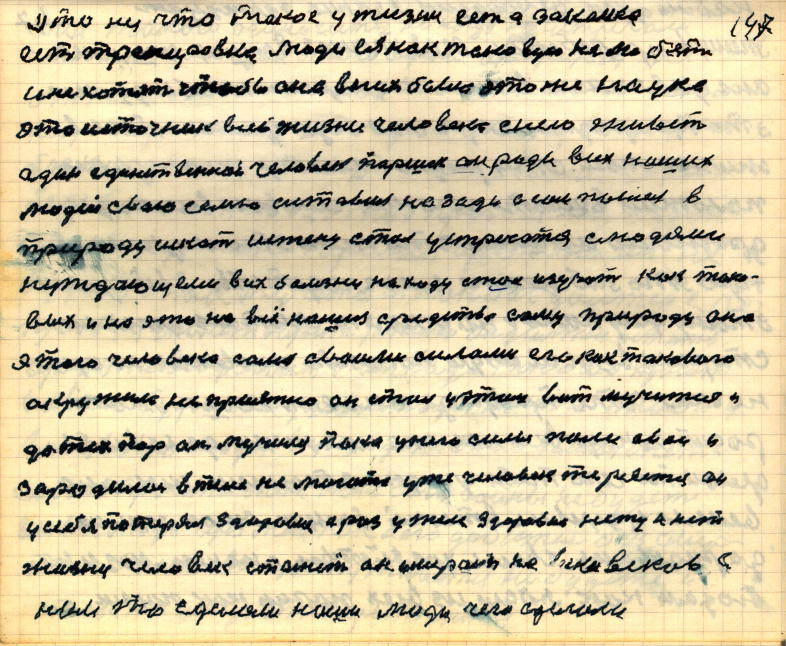 147
это ну что такое у жизни есть а закалка
есть тренировка люди ея как таковую не любят
и не хотят чтобы она в них была это же наука
это источник всей жизни человека с нею живет
один единственной человек паршек он ради всех наших
людей свою семью оставил назади а сам пошел в
природу искат истену стал устречатся с людями
нуждающеми в их болезни находу стал изучат как тако-
вых и на это на всё нашия средства саму природу она
этого человека само своими силами его как такового
окружила неприятно он стал у этом вот мучится и
до тех пор он мучился пока у него силы пали свои и
зародилос в теле не могота уже человек теряется он
у себя потерял здоровие а раз уже здоровия нету и нет
жизни человек станет он умирать на веки веков с
ним это сделали нашы люди чего сделали